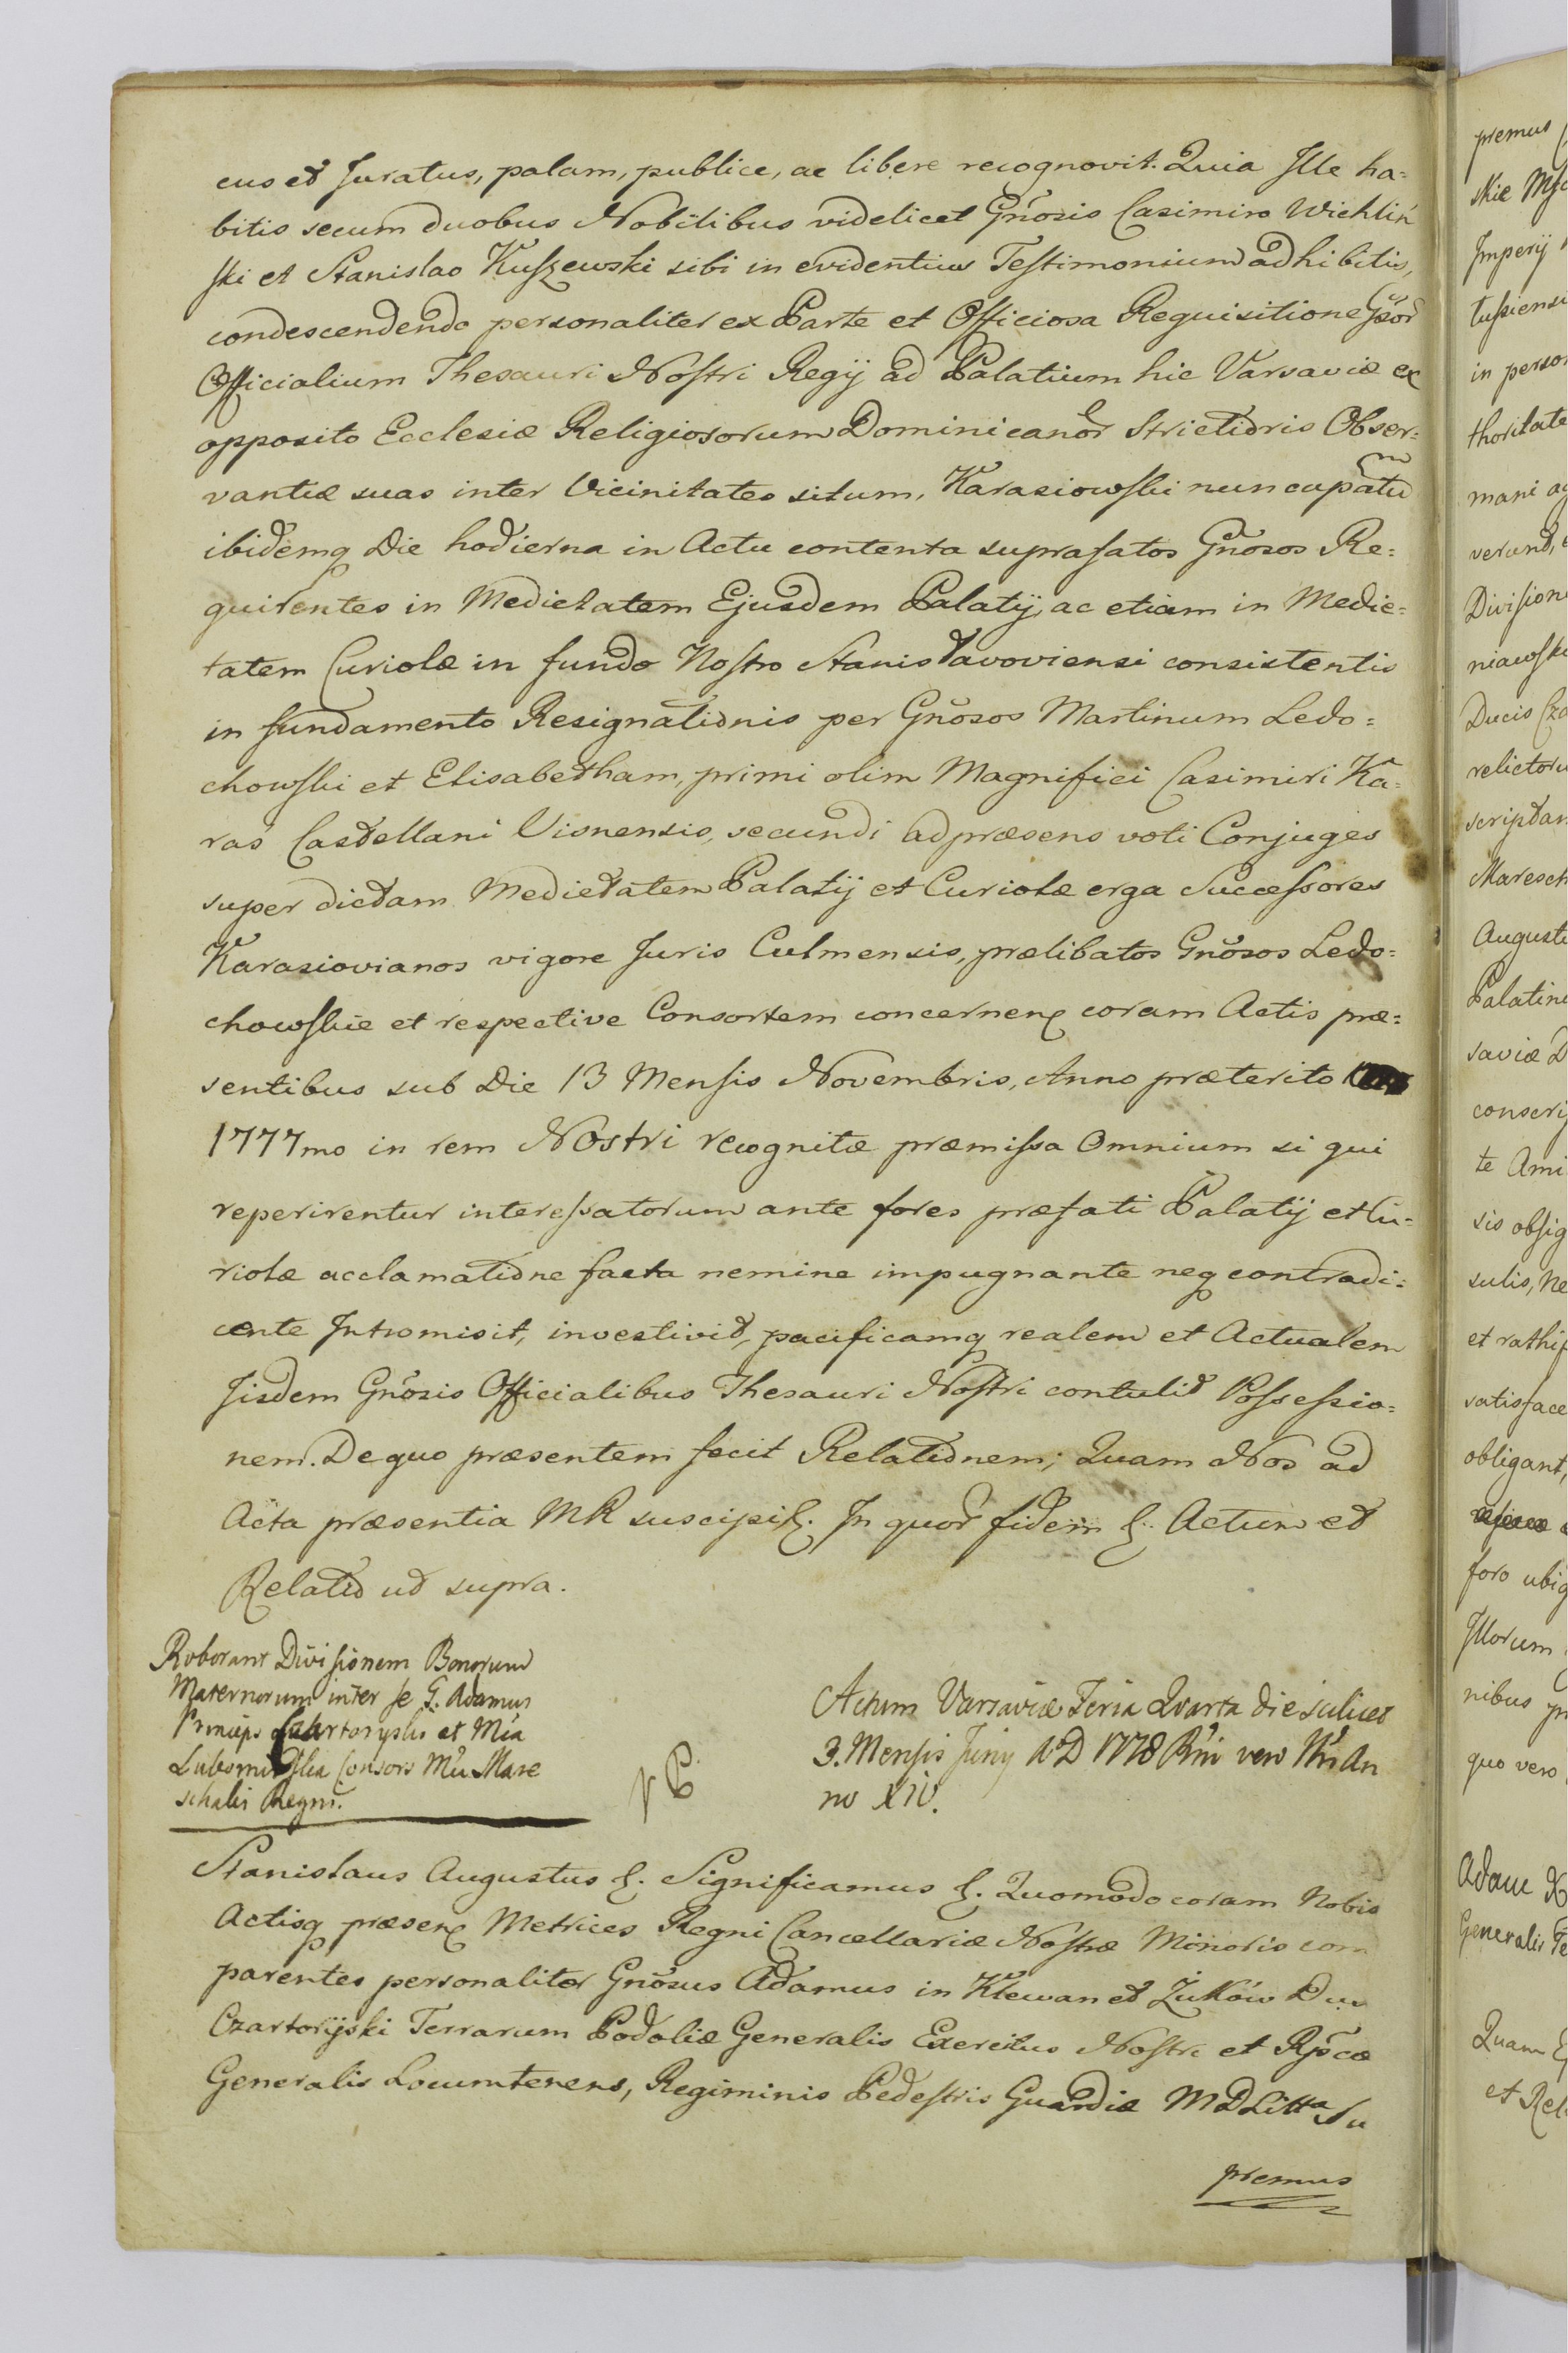 cus et Juratus, palam, publice, ac libere recognovit. Quia Ille ha=
bitis secum duobus Nobilibus videlicet Gnosis Casimiro Wichliń
ski et Stanislao Kuszewski sibi in evidentius Testimonium adhibitis,
condescendendo personaliter ex Parte et Officiosa Requisitione Gsor
Officialium Thesauri Nostri Regij ad Palatium hic Varsaviæ ex
opposito Ecclesiæ Religiosorum Dominicanor Strictioris Obser=
vantiæ suas inter Vicinitates situm, Karasiowski nuncupatu
ibidemq Die hodierna in Actu contenta suprafatos Gnosos Re=
quirentes in Medietatem Ejusdem Palatij, ac etiam in Medie=
tatem Curiolæ in fundo Nostro Stanislavoviensi consistentis
in fundamento Resignationis per Gnosos Martinum Ledo=
chowski et Elisabetham, primi olim Magnifici Casimiri Ka=
ras Castellani Visnensis, secundi ad præsens voti Conjuges
super dictam Medietatem Palatij et Curiolæ erga Successores
Karasiovianos vigore Juris Culmensis, prælibatos Gnosos Ledo=
chowskie et respective Consortem concernen coram Actis præ=
sentibus sub Die 13 Mensis Novembris, Anno præterito
1777mo in rem Nostri recognitæ præmissa Omnium si qui
reperirentur interessatorum ante fores præfati Palatij et Cu=
riolæ acclamatione facta nemine impugnante neq contradi=
cente Intromisit, investivit, pacificamq realem et Actualem
Iisdem Gnosis Officialibus Thesauri Nostri contulit Possessio=
nem. De quo præsentem fecit Relationem; Quam Nos ad
Acta præsentia MR suscipi. In quor fidem Actum et
Relatio ut supra.
Roborant Divisionem Bonorum
Maternorum inter se G. Adamus
Princeps Czartoryski et Mia
Lubomirska Consors Mu Mare
schalis Regni.
Actum Varsaviæ Feria Quarta die scilicet
3. Mensis Junij AD 1778 Rni vero Nri An
no XIV.
Stanislaus Augustus Significamus Quomodo coram Nobis
Actisq præsen Metrices Regni Cancellariæ Nostræ Minoris com
parentes personaliter Gnosus Adamus in Klewan et Żuków Dux
Czartorijski Terrarum Podoliæ Generalis Exercitus Nostri et Rpcæ
Generalis Locumtenens, Regiminis Pedestris Guardiæ MDLitta Su
premus
premus
Imperij
in perso
thoritate
mani ag
verunt,
Division
niawski
Ducis Cza
relictoru
scriptam
Maresch
August
Palatin
saviæ D
conscrip
te Ami
sis obsig
sulis, Ne
et rathif
satisface
obligant,
foro ubiq
Illorum
nibus pr
quo vero
Adam
Generalis Te
Quam
et Rel